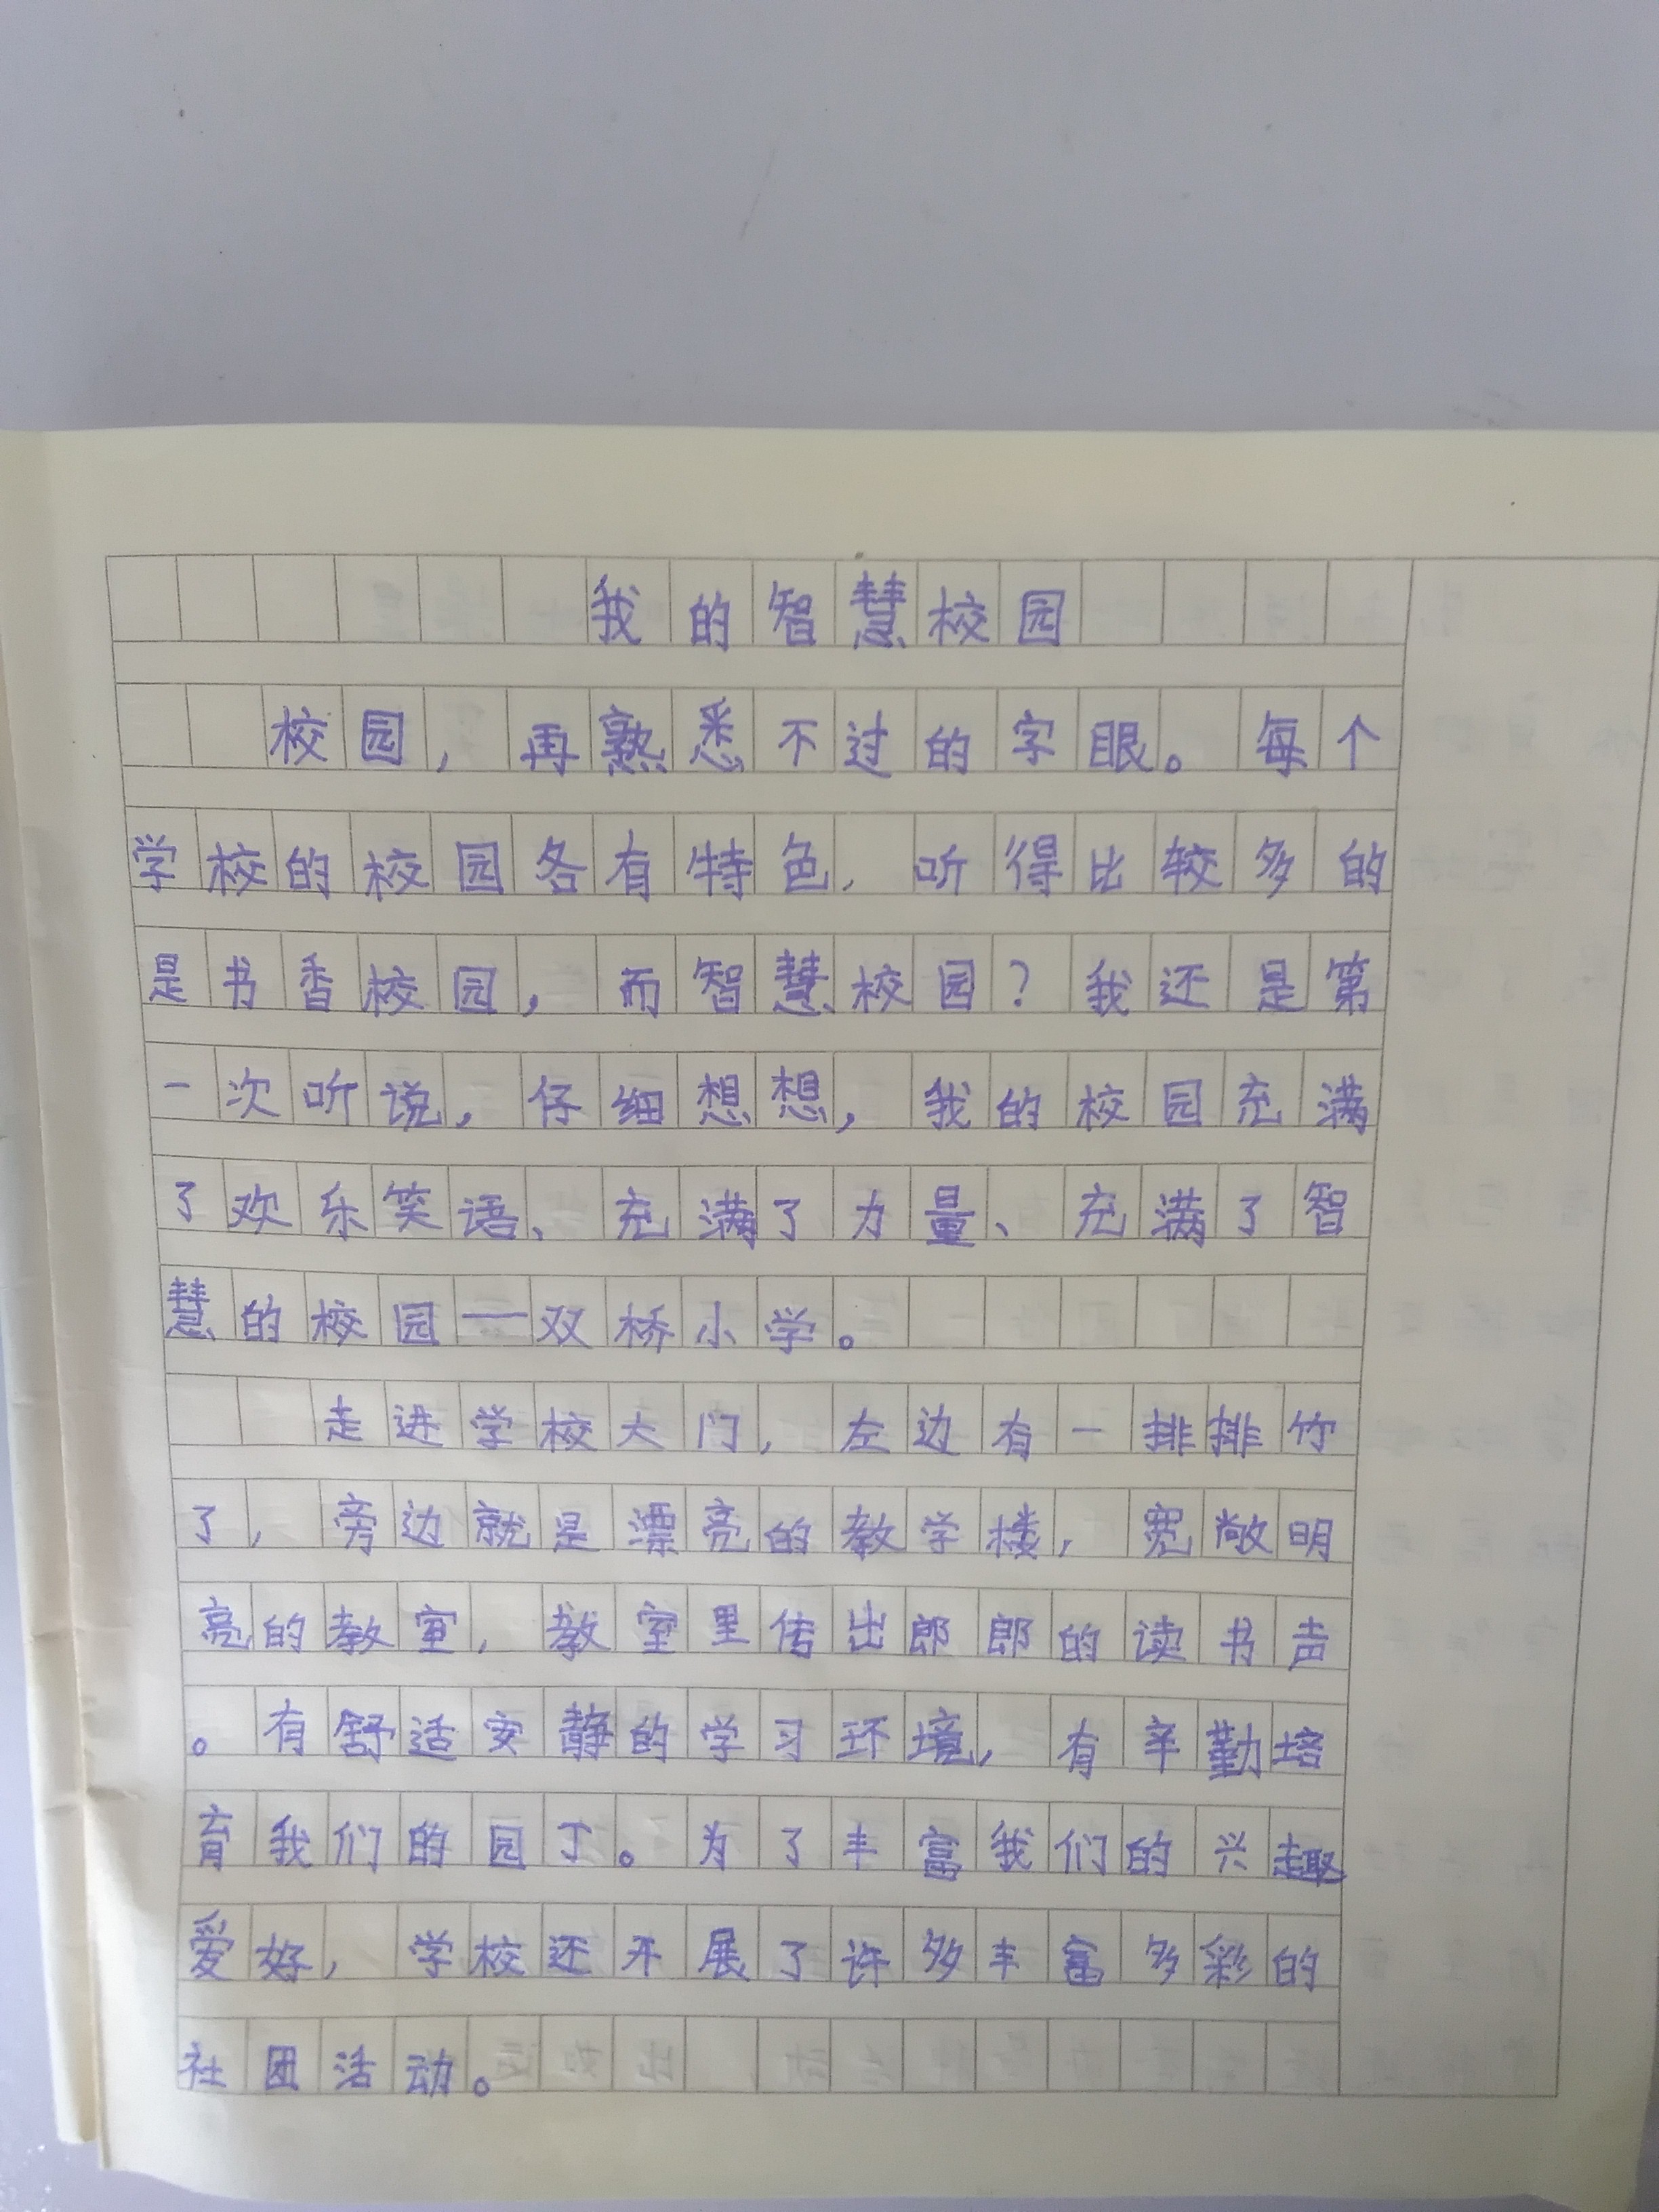 我的智慧校园
校园，再熟悉不过的字眼。每个
学校的校园各有特色，听得比较多的
是书香校园，而智慧校园？我还是第
一次听说，仔细想想，我的校园充满
了欢乐笑语、充满了力量、充满了智
慧的校园——双桥小学。
走进学校大门，左边有一排排竹
了，旁边就是漂亮的教学楼，宽敞明
亮的教室，教室里传出郎郎的读书声
。有舒适安静的学习环境，有辛勤培
育我们的园丁。为了丰富我们的兴趣
爱好，学校还开展了许多丰富多彩的
社团活动。